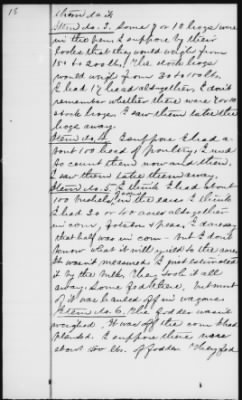 18
Item No. 3. Some 9 or 10 hogs were
in the pen. I suppose by their
looks that they would weigh from
150 to 200 lbs. The stock hogs
would weigh from 30 to
I had 17 head altogether. I don't
remember whether there were 7 or
stock hogs. I saw them take the
hogs away.
Item No. 4. I suppose I had a-
bout 100 head of poultry; I used
to count them now and then.
I saw them take them away.
Item No. 5. I think I had about
100 bushels, in the ear. I think
I had 30 or 40 acres altogether
in corn, & peas; I dare say
that half was in corn. But I don't
know what it will yield to the acre.
It wasn't measured. I just estimated
it by the They took it all
away; some fed there, but most
of it was hauled off in wagons.
Item No. 6. The fodder wasn't
weighed. It was off the corn I had
planted. I suppose there were
about 1500 lbs. of fodder. They fed